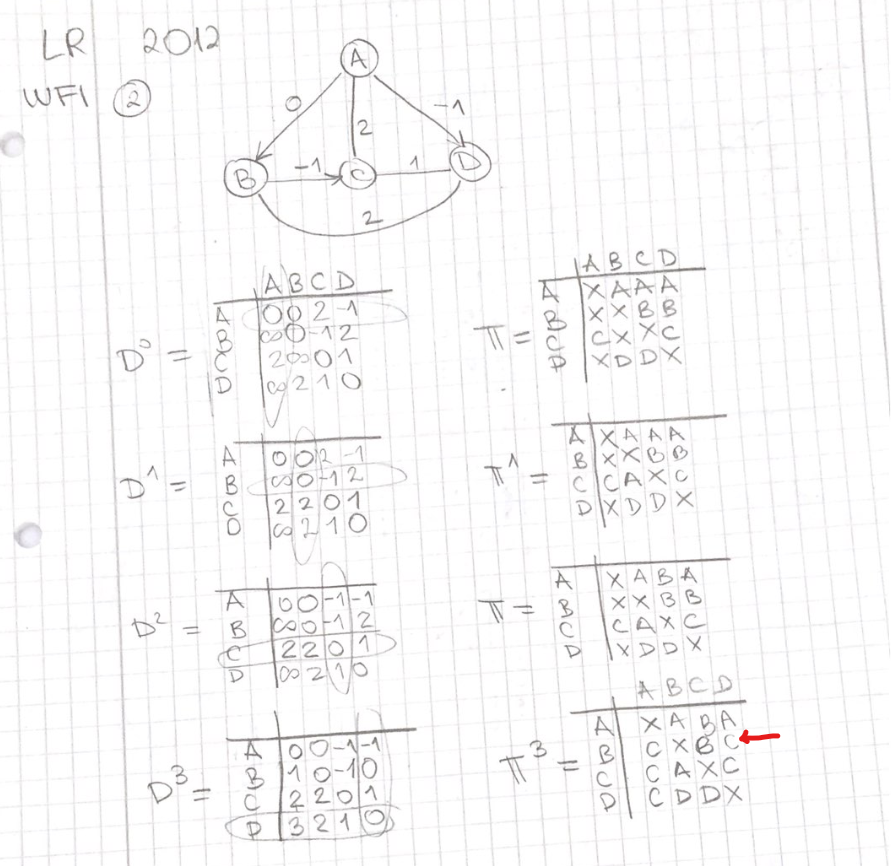 LR 2012
WFI 2
A
0 -1
2
B -1 C 1 D
2
A B C D
A 0 0 2 -1
B ∞ 0 -1 2
C 2 ∞ 0 1
D ∞ 2 1 0
D⁰ =
A B C D
A X A A A
B X X B B
C C X X C
D X D D X
π =
A 0 0 2 -1
B ∞ 0 -1 2
C 2 2 0 1
D ∞ 2 1 0
D¹ =
A X A A A
B X X B B
C C A X C
D X D D X
π¹ =
A 0 0 -1 -1
B ∞ 0 -1 2
C 2 2 0 1
D ∞ 2 1 0
D² =
A X A B A
B X X B B
C C A X C
D X D D X
π =
A 0 0 -1 -1
B 1 0 -1 0
C 2 2 0 1
D 3 2 1 0
D³ =
A B C D
A X A B A
B C X B C
C C A X C
D C D D X
π³ =